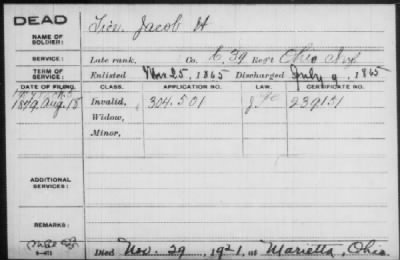 DEAD
NAME OF SOLDIER: Jacob H
SERVICE: Late rank, Co. 39 Reg't Ohio Inf
TERM OF SERVICE: Enlisted 25, 1865 Discharged July 9, 1865
DATE OF FILING. CLASS. APPLICATION NO. LAW. CERTIFICATE NO.
1879, Aug. 18 Invalid, 304.501 239151
Widow,
Minor,
ADDITIONAL SERVICES:
REMARKS:
Died Nov. 29, 1921, at Marietta, Ohio.